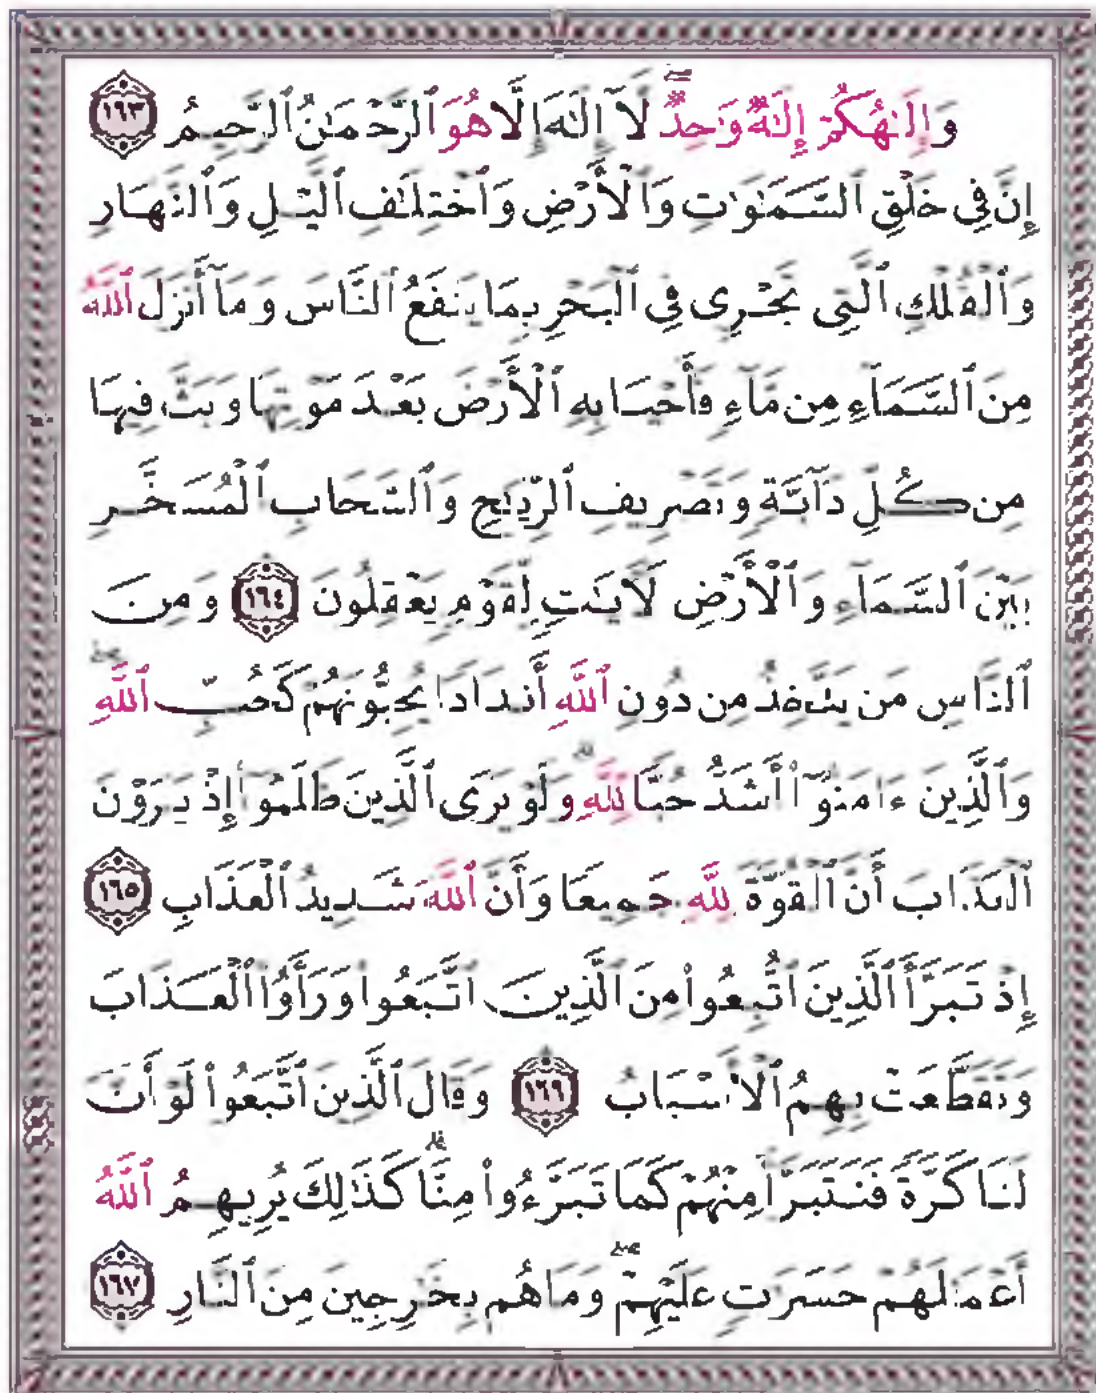 وَإِلَٰهُكُمْ إِلَٰهٌ وَٰحِدٌ ۖ لَّآ إِلَٰهَ إِلَّا هُوَ ٱلرَّحْمَٰنُ ٱلرَّحِيمُ ١٦٣
إِنَّ فِى خَلْقِ ٱلسَّمَٰوَٰتِ وَٱلْأَرْضِ وَٱخْتِلَٰفِ ٱلَّيْلِ وَٱلنَّهَارِ
وَٱلْفُلْكِ ٱلَّتِى تَجْرِى فِى ٱلْبَحْرِ بِمَا يَنفَعُ ٱلنَّاسَ وَمَآ أَنزَلَ ٱللَّهُ
مِنَ ٱلسَّمَآءِ مِن مَّآءٍ فَأَحْيَا بِهِ ٱلْأَرْضَ بَعْدَ مَوْتِهَا وَبَثَّ فِيهَا
مِن كُلِّ دَآبَّةٍ وَتَصْرِيفِ ٱلرِّيَٰحِ وَٱلسَّحَابِ ٱلْمُسَخَّرِ
بَيْنَ ٱلسَّمَآءِ وَٱلْأَرْضِ لَءَايَٰتٍ لِّقَوْمٍ يَعْقِلُونَ ١٦٤ وَمِنَ
ٱلنَّاسِ مَن يَتَّخِذُ مِن دُونِ ٱللَّهِ أَندَادًا يُحِبُّونَهُمْ كَحُبِّ ٱللَّهِ ۖ
وَٱلَّذِينَ ءَامَنُوٓا۟ أَشَدُّ حُبًّا لِّلَّهِ ۗ وَلَوْ يَرَى ٱلَّذِينَ ظَلَمُوٓا۟ إِذْ يَرَوْنَ
ٱلْعَذَابَ أَنَّ ٱلْقُوَّةَ لِلَّهِ جَمِيعًا وَأَنَّ ٱللَّهَ شَدِيدُ ٱلْعَذَابِ ١٦٥
إِذْ تَبَرَّأَ ٱلَّذِينَ ٱتُّبِعُوا۟ مِنَ ٱلَّذِينَ ٱتَّبَعُوا۟ وَرَأَوُا۟ ٱلْعَذَابَ
وَتَقَطَّعَتْ بِهِمُ ٱلْأَسْبَابُ ١٦٦ وَقَالَ ٱلَّذِينَ ٱتَّبَعُوا۟ لَوْ أَنَّ
لَنَا كَرَّةً فَنَتَبَرَّأَ مِنْهُمْ كَمَا تَبَرَّءُوا۟ مِنَّا ۗ كَذَٰلِكَ يُرِيهِمُ ٱللَّهُ
أَعْمَٰلَهُمْ حَسَرَٰتٍ عَلَيْهِمْ ۖ وَمَا هُم بِخَٰرِجِينَ مِنَ ٱلنَّارِ ١٦٧